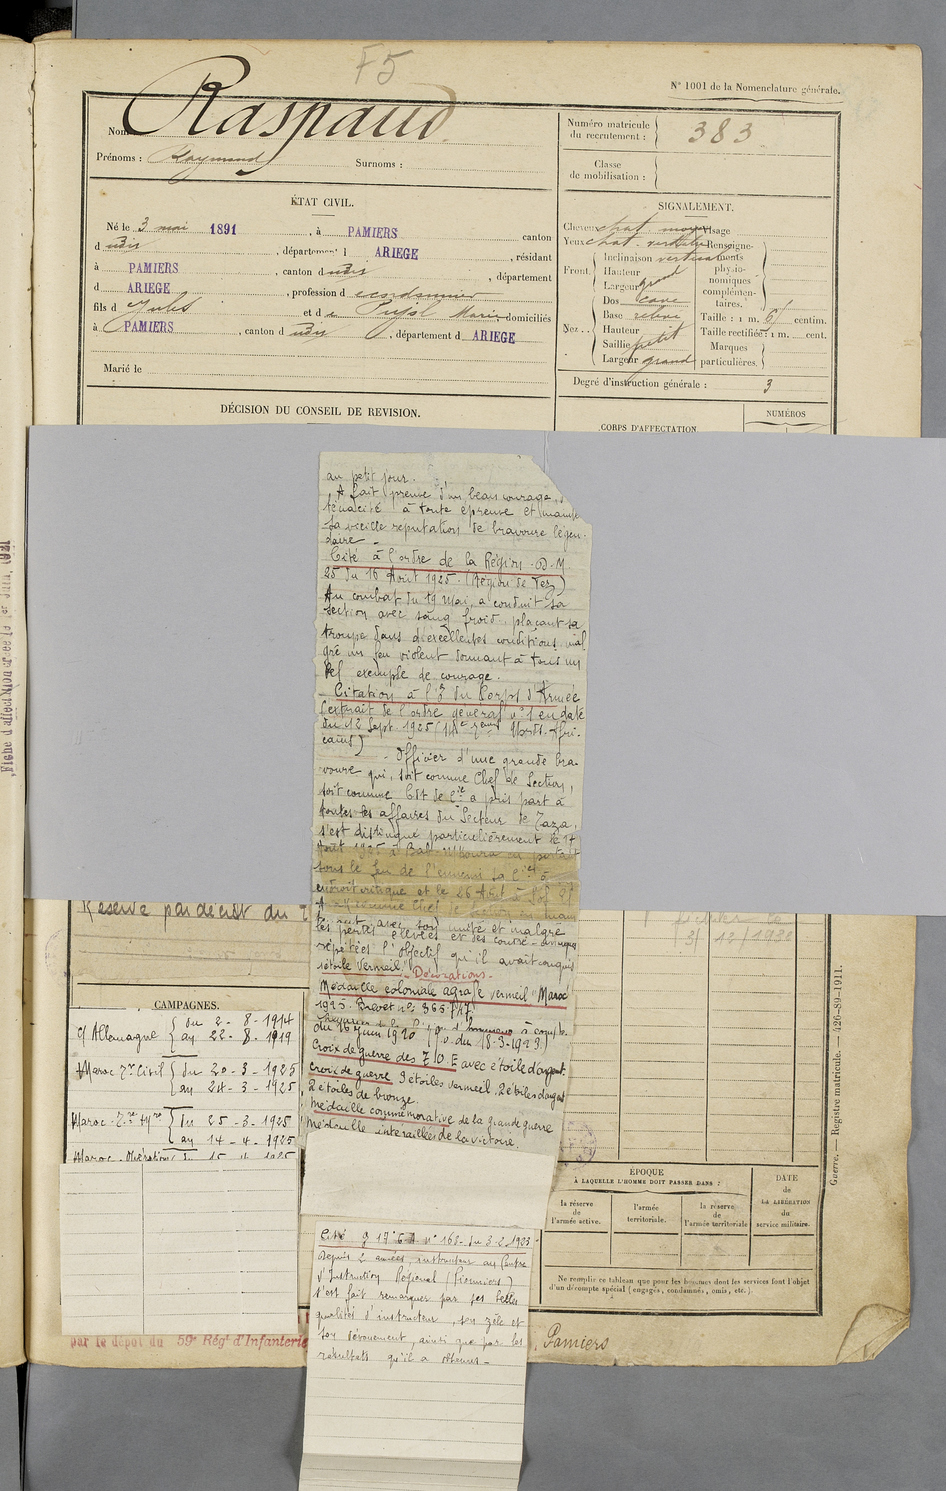 F5
N° 1001 de la Nomenclature générale.
Nom : Raspaud
Prénoms : Raymond Surnoms :
Numéro matricule du recrutement : 383
Classe de mobilisation :
ÉTAT CIVIL.
Né le 3 mai 1891, à PAMIERS canton
d udit, département d ARIEGE, résidant
à PAMIERS, canton d udit, département
d ARIEGE, profession d e cordonnier
fils d Jules et d e Pujol Marie, domiciliés
à PAMIERS, canton d udit, département d ARIEGE
Marié le
SIGNALEMENT.
Cheveux chat. moyen
Yeux chat. verdâtre
Front. Inclinaison verticale
Hauteur
Largeur grand
Nez.. Dos cave
Base relevé
Hauteur
Saillie petit
Largeur grand
Visage
Renseignements physionomiques complémentaires.
Taille : 1 m. 61 centim.
Taille rectifiée : 1 m. cent.
Marques particulières.
Degré d'instruction générale : 3
DÉCISION DU CONSEIL DE REVISION.
CORPS D'AFFECTATION
NUMÉROS
au petit jour.
A fait preuve d'un beau courage,
ténacité à toute épreuve et
sa vieille réputation de bravoure légen-
daire -
Cité à l'ordre de la Région - D.M
25 du 16 Août 1925 - (Région de Fez)
Au combat du 19 Mai, a conduit sa
section avec sang froid, plaçant sa
troupe dans d'excellentes conditions mal
gré un feu violent donnant à tous un
bel exemple de courage.
Citation à l'O du Corps d'Armée
(extrait de l'ordre général n° 1 en date
du 12 Sept. 1925 (
cains)
- Officier d'une grande bra-
voure qui, soit comme Chef de Section,
soit comme Cdt de Cie a pris part à
toutes les affaires du Secteur de Taza,
s'est distingué particulièrement le 17
Août 1925 à en portant
sous le feu de l'ennemi sa Cie à
endroit critique et le 26 Août à
avec son unité et malgré
les pertes élevées et des contre-attaques
répétées l'objectif qu'il avait conquis
"étoile Vermeil" - Décorations -
Médaille coloniale agrafe vermeil "Maroc
1925. Brevet n° 365 747
du 16 Juin 1920 (J.O. du 18-3-1923)
Croix de guerre des T.O.E avec étoile d'argent.
Croix de guerre 3 étoiles vermeil, 2 étoiles d'argent
2 étoiles de bronze.
Médaille commémorative de la grande guerre
Médaille interalliée de la victoire.
Réserve par décret du
CAMPAGNES.
c/ Allemagne du 2 - 8 - 1914
au 22 - 8 - 1919
Maroc Zne Civil du 20 - 3 - 1925
au 24 - 3 - 1925
Maroc Zne Mre du 25 - 3 - 1925
au 14 - 4 - 1925
Maroc - Opérations du 15 - 4 - 1925
31/12/1930
ÉPOQUE
À LAQUELLE L'HOMME DOIT PASSER DANS :
la réserve de l'armée active.
l'armée territoriale.
la réserve de l'armée territoriale
DATE de LA LIBÉRATION du service militaire.
Ne remplir ce tableau que pour les hommes dont les services font l'objet
d'un décompte spécial (engagés, condamnés, omis, etc.).
Guerre. — Registre matricule. — 426-89-1911.
Cité n° 168 du 3-2-1923
Depuis 2 années, instructeur au Centre
d'Instruction Régional (Pionniers)
s'est fait remarquer par ses belles
qualités d'instructeur, son zèle et
son dévouement, ainsi que par les
résultats qu'il a obtenus -
par le dépôt du 59e Régt d'Infanterie
Pamiers